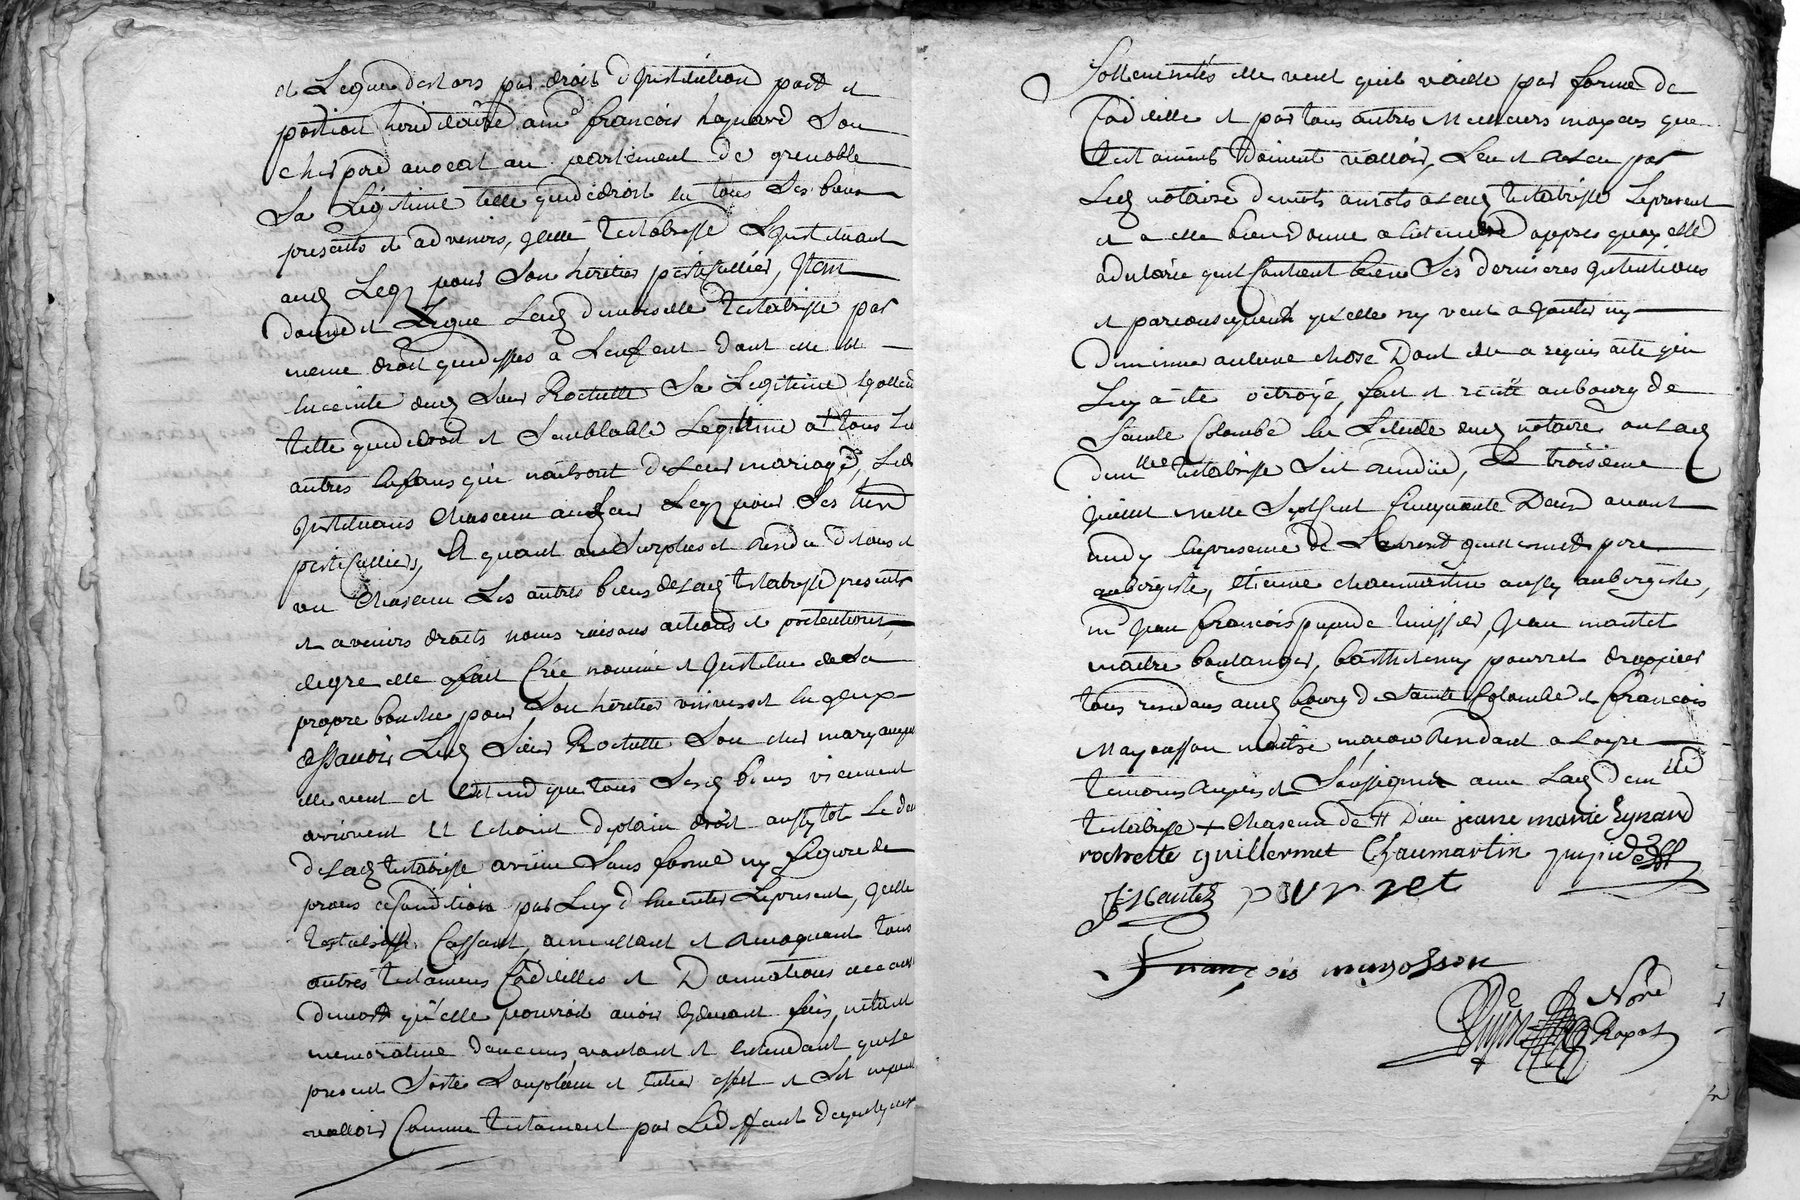 et Legue deslors par droit d'Institution part et
portion hereditaire a me francois heynard Son
cher pere avocat au parlement de grenoble
Sa Legitime telle que de droit en tous Ses biens
presents et advenirs, qelle testatrisse L'instituant
audt Legz pour Son heritier particullier, Item
donne et Legue Ladt demoiselle testatrisse par
meme droit que dessus a Lenfent dont elle est
enceinte dudt Sieur Rochette Sa Legitime
telle que de droit et Semblable Legitime a tous Les
autres enfans qui naitront de Leur mariage, Les
Instituans chascun audt Legz pour Ses heritiers
particulliers, Et quant au Surplus et Residu de tous et
un chascun Les autres biens de Ladt testatrisse presents
et avenirs droits noms raisons actions et pretentions,
elle a fait Crée nommé et Institue de Sa
propre bouche pour Son heritier universel
assavoir Ledt Sieur Rochette Son cher mary auquel
elle veut et Entend que tous Sesdt biens viennent
arrivent et echoint de plain droit aussytot Le deces
de Ladt testatrisse arrivé Sans forme ny figure de
proces a Condition par Luy d'
testatrisse Cassant, annullant et revoquant tous
autres testamens Codicilles et Donnations a cause
de mort qu'elle pourroit avoir cydevant fais, n'etant
memorative d'aucuns, voulant et entendant que Le
present Sorte Son plein et entier effet et
valloir Comme testament par Le deffaut de quelques
Sollemnités elle veut quil vaille par forme de
Codicille et par tous autres Meilleurs moyens que
testamens doivent valloir, Leu et releu par
Ledt notaire de mots a mots a Ladt testatrisse Le present
et a elle bien donné a entendre appres quoy elle
a declaré quil Contient bien Ses dernieres Intentions
et par consequent qu'elle ny veut ajouter ny
diminuer aulcune chose Dont elle a requis acte qui
Luy a été octroyé, fait et recité au bourg de
Sainte Colombe en Letude dudt notaire ou Ladt
demlle testatrisse Sest rendüe, Le troisieme
juillet mille Septcent Cinquante Deux avant
midy en presence de guillermet pere
aubergiste, étienne chaumartin aussy aubergiste,
me Jean francois huissier, Jean mantet
maitre boulanger, barthelemy pourret drappier
tous residans audt bourg de Sainte Colombe et francois
Mayousson maitre macon Residant a Loyre
temoins requis et Soussignés avec Ladt demlle
testatrisse + chascun de Dieu jeane marie Eynard
rochette guillermet Chaumartin
J Mantet pourret
François mayosson
Nore
Royal